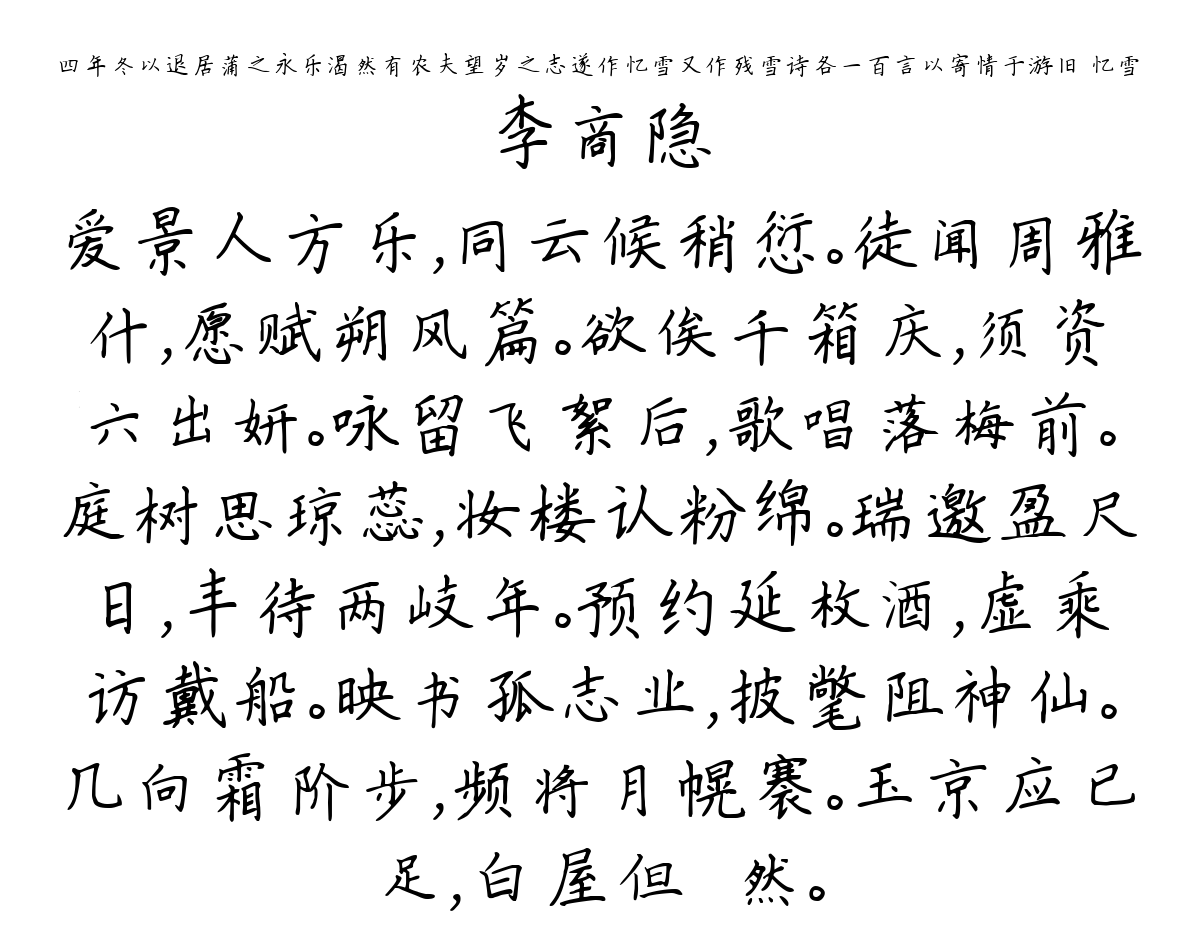 四年冬以退居蒲之永乐渴然有农夫望岁之志遂作忆雪又作残雪诗各一百言以寄情于游旧 忆雪
李商隐
爱景人方乐,同云候稍愆。徒闻周雅
什,愿赋朔风篇。欲俟千箱庆,须资
六出妍。咏留飞絮后,歌唱落梅前。
庭树思琼蕊,妆楼认粉绵。瑞邀盈尺
日,丰待两岐年。预约延枚酒,虚乘
访戴船。映书孤志业,披氅阻神仙。
几向霜阶步,频将月幌褰。玉京应已
足,白屋但 然。